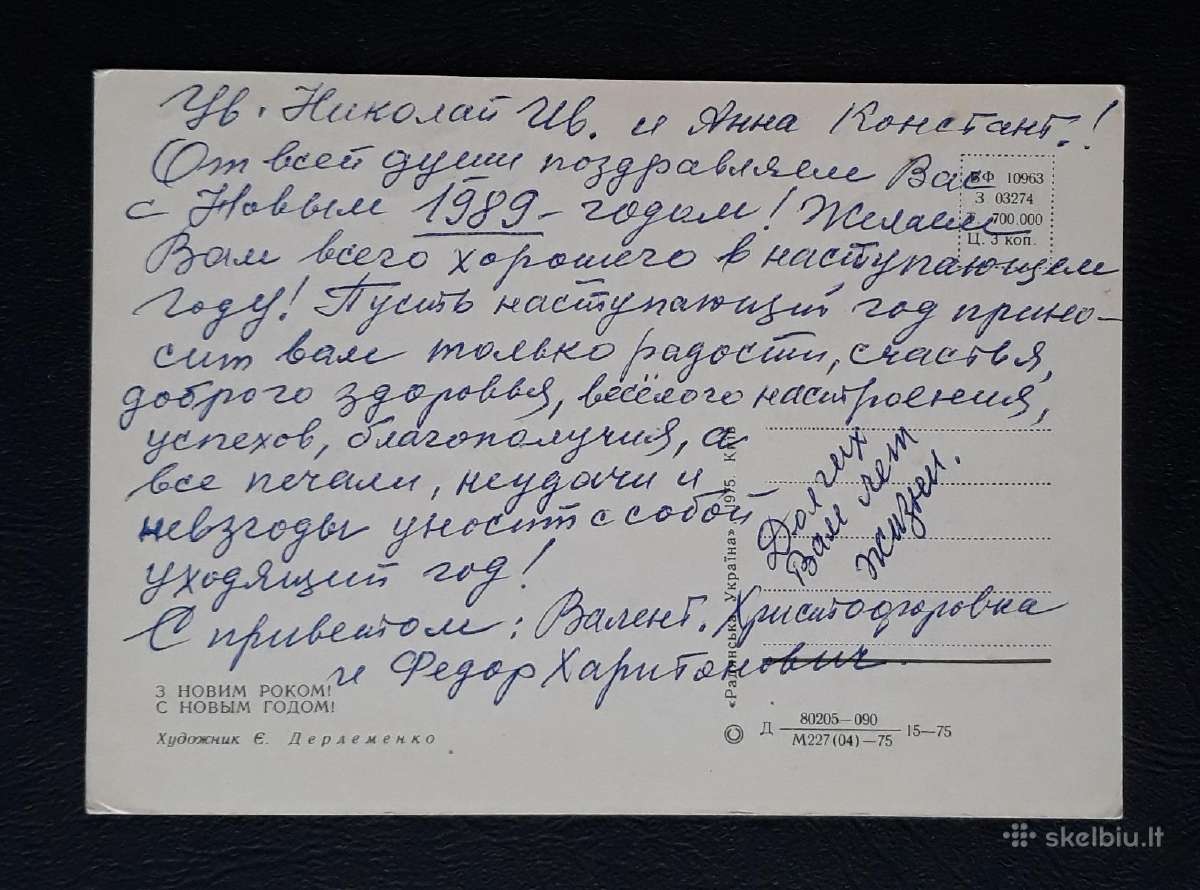 Ув. Николай Ив. и Анна Констант.!
От всей души поздравляем Вас
с Новым 1989 - годом! Желаем
Вам всего хорошего в наступающем
году! Пусть наступающий год прино-
сит вам только радости, счастья,
доброго здоровья, весёлого настроения,
успехов, благополучия, а
все печали, неудачи и
невзгоды уносит с собой
уходящий год!
С приветом: Валент. Христофоровна
и Федор Харитонович.
Долгих
Вам лет
жизни.
БФ 10963
З 03274
700.000
Ц. 3 коп.
З НОВИМ РОКОМ!
С НОВЫМ ГОДОМ!
Художник Є. Дерлеменко
«Радянська Україна» 1975.
© Д 80205—090
М227(04)—75
15—75
skelbiu.lt